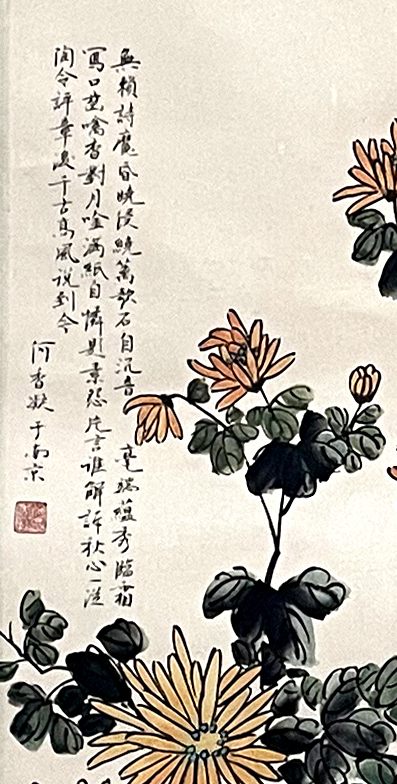 無賴詩魔昏曉侵繞籬欹石自沉音 毫端蘊秀臨霜
寫口齒噙香對月吟滿紙自憐題素怨片言誰解訴秋心一從
陶令評章後千古高風说到今
何香凝于南京